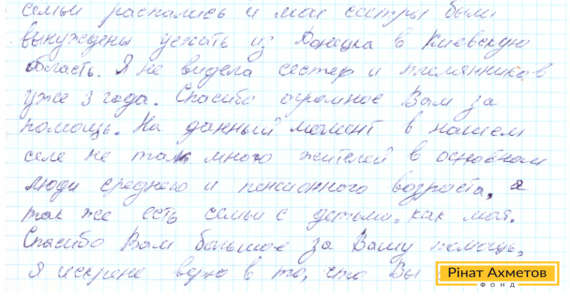 семьи распались и мои сестры были
вынуждены уехать из Донецка в Киевскую
область. Я не видела сестер и племянников
уже 3 года. Спасибо огромное Вам за
помощь. На данный момент в нашем
селе не так много жителей в основном
люди среднего и пенсионного возраста, а
так же есть семьи с детьми, как моя.
Спасибо Вам большое за Вашу помощь,
я искрене верю в то, что Вы
Рінат Ахметов
ФОНД